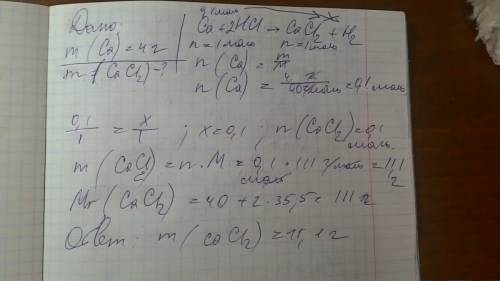 Дано:
m(Ca)=4г
m(CaCl₂)-?
0,1 моль x
Ca+2HCl → CaCl₂+H₂
n=1моль n=1моль
n(Ca)=m/M
n(Ca)=4 г/40г/моль=0,1 моль
0,1/1 = x/1 ; x=0,1 ; n(CaCl₂)=0,1 моль
m(CaCl₂)=n·M=0,1 моль·111 г/моль=11,1 г
Mr(CaCl₂)=40+2·35,5=111 г
Ответ: m(CaCl₂)=11,1г